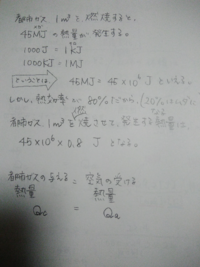 都市ガス 1m³を燃焼すると、
45MJの熱量が発生する。
1000J = 1KJ
1000KJ = 1MJ
ということは 45MJ = 45×10⁶ J といえる。
しかし、熱効率が80%だから、(20%は
都市ガス1m³を燃焼させて、発生する熱量は
45×10⁶×0.8 J となる。
都市ガスの与える熱量 = 空気の受ける熱量
=